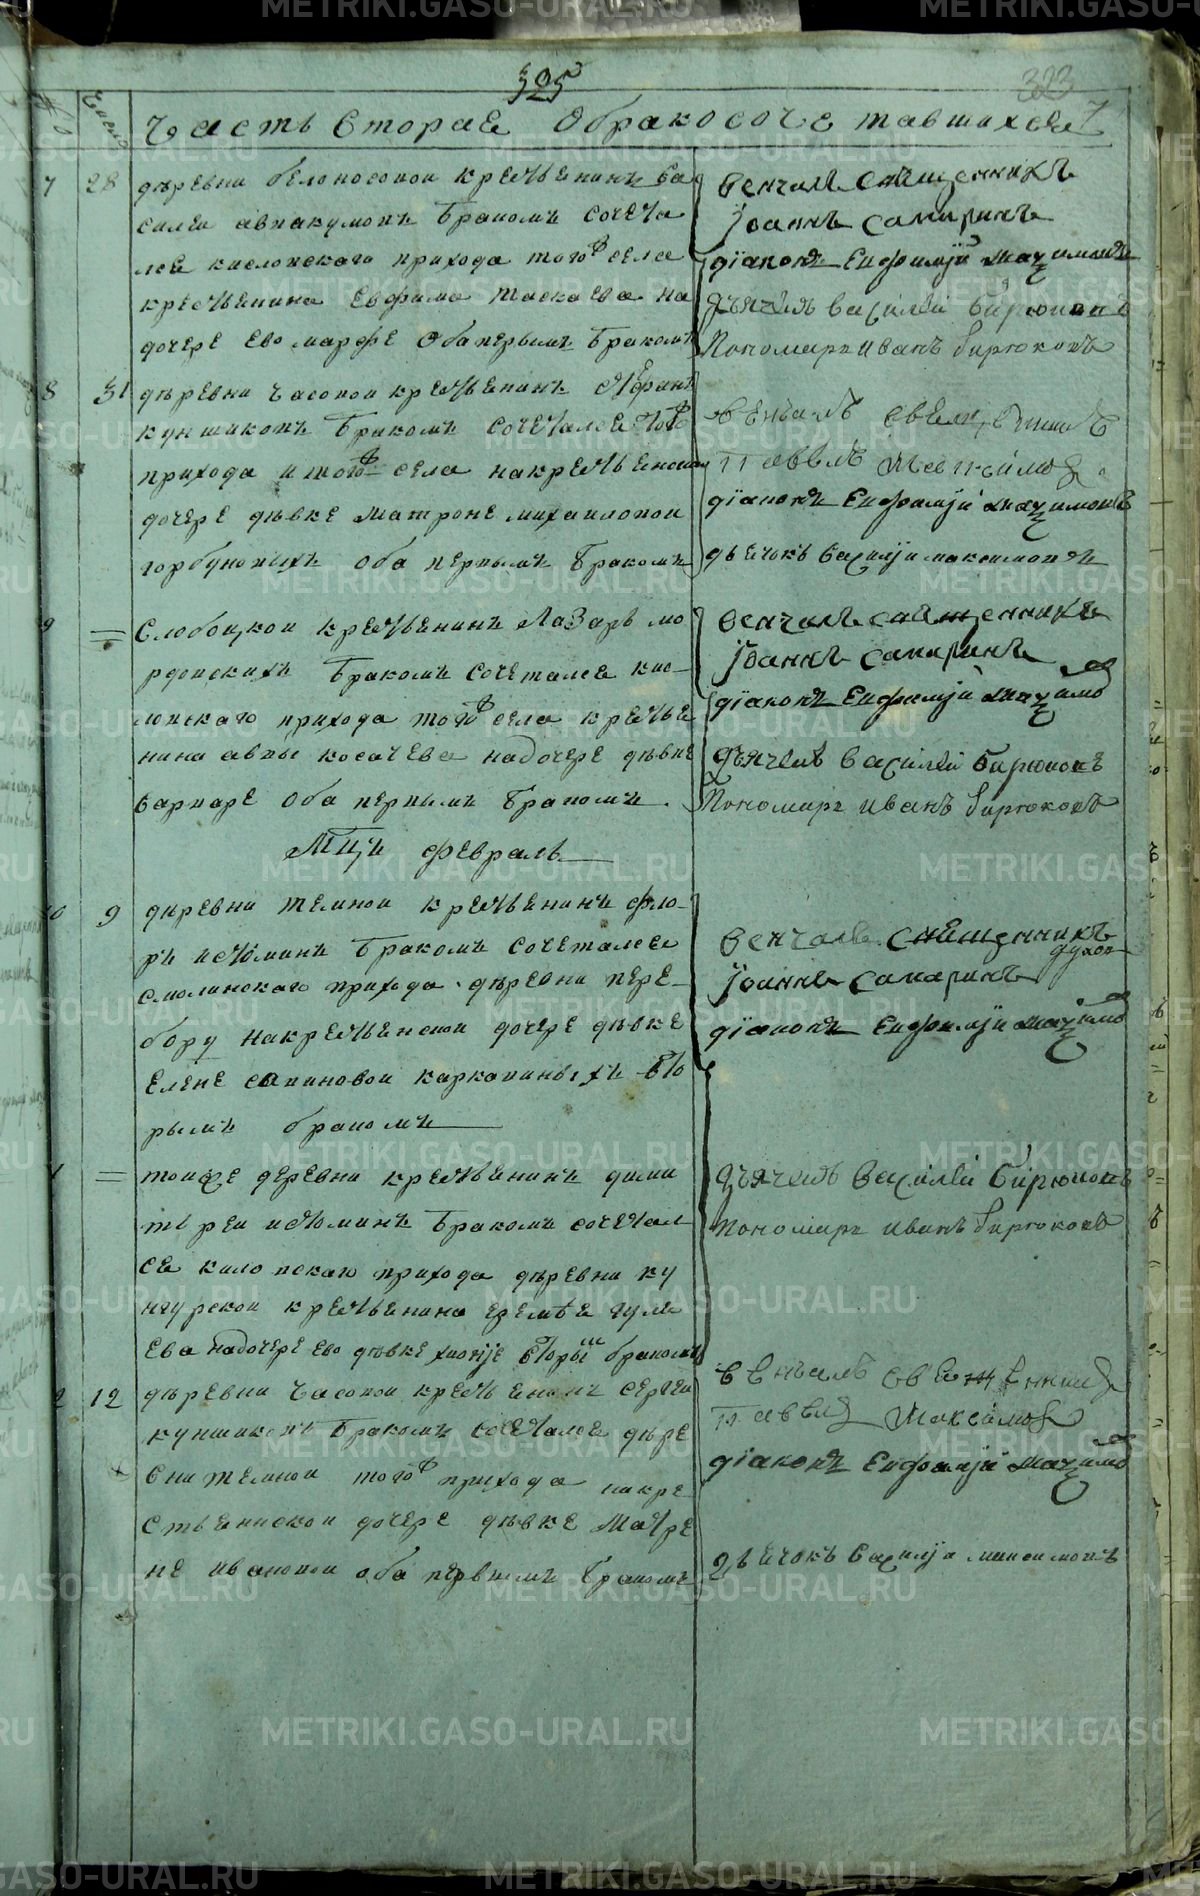 325
323
Число
Часть вторая о бракосочетавшихся
7 28 деревни белоносовой крестьенинъ ва
силеи авпакумовъ браком сочета
лся кисловскаго прихода того села
крестьенина евфима таскаева на
дочере ево марфе оба первымъ бракомъ
венчалъ священникъ
Iоаннъ самаринъ
дiаконъ Евфимiй
дьячекъ василей бирюковъ
Пономарь иванъ бирюковъ
8 31 деревни часовои крестьенинъ
кунщиковъ бракомъ сочетался того
прихода и того села на крестьенской
дочере девке матроне михаиловои
горбуновыхъ оба первымъ бракомъ
венчалъ священникъ
Павелъ
дiаконъ Евфимiй
дьячокъ василiй максимовъ
9 = слобоцкои крестьенинъ лазарь мо
рдовскихъ бракомъ сочетался кис-
ловскаго прихода того села крестье
нина авры косачева на дочере девке
варваре оба первымъ бракомъ.
венчалъ священникъ
Iоаннъ самаринъ
дiаконъ Евфимiй
дьячекъ василей бирюковъ
Пономарь иванъ бирюковъ
Мцъ февраль
10 9 деревни темнои крестьенинъ фло-
ръ истоминъ бракомъ сочетался
смолинскаго прихода деревни пере-
бору на крестьенской дочере девке
елене савиновои каркапиныхъ вто
рымъ бракомъ
венчалъ священникъ
Iоаннъ самаринъ
дiаконъ Евфимiй
= тоиже деревни крестьенинъ дими
треи истоминъ бракомъ сочетал
ся кисловскаго прихода деревни ку
нгурскои крестьенина еремея гуля
ева на дочере ево девке вторым браком
дьячекъ василей бирюковъ
пономарь иванъ бирюковъ
2 12 деревни часовои крестьенинъ сергеи
кунщиковъ бракомъ сочетался дере
вни темнои того прихода на кре-
стьеннскои дочере девке матре
не ивановои оба первымъ бракомъ
венчалъ священникъ
Павелъ
дiаконъ Евфимiй
дьячокъ василiй максимовъ
METRIKI.GASO-URAL.RU